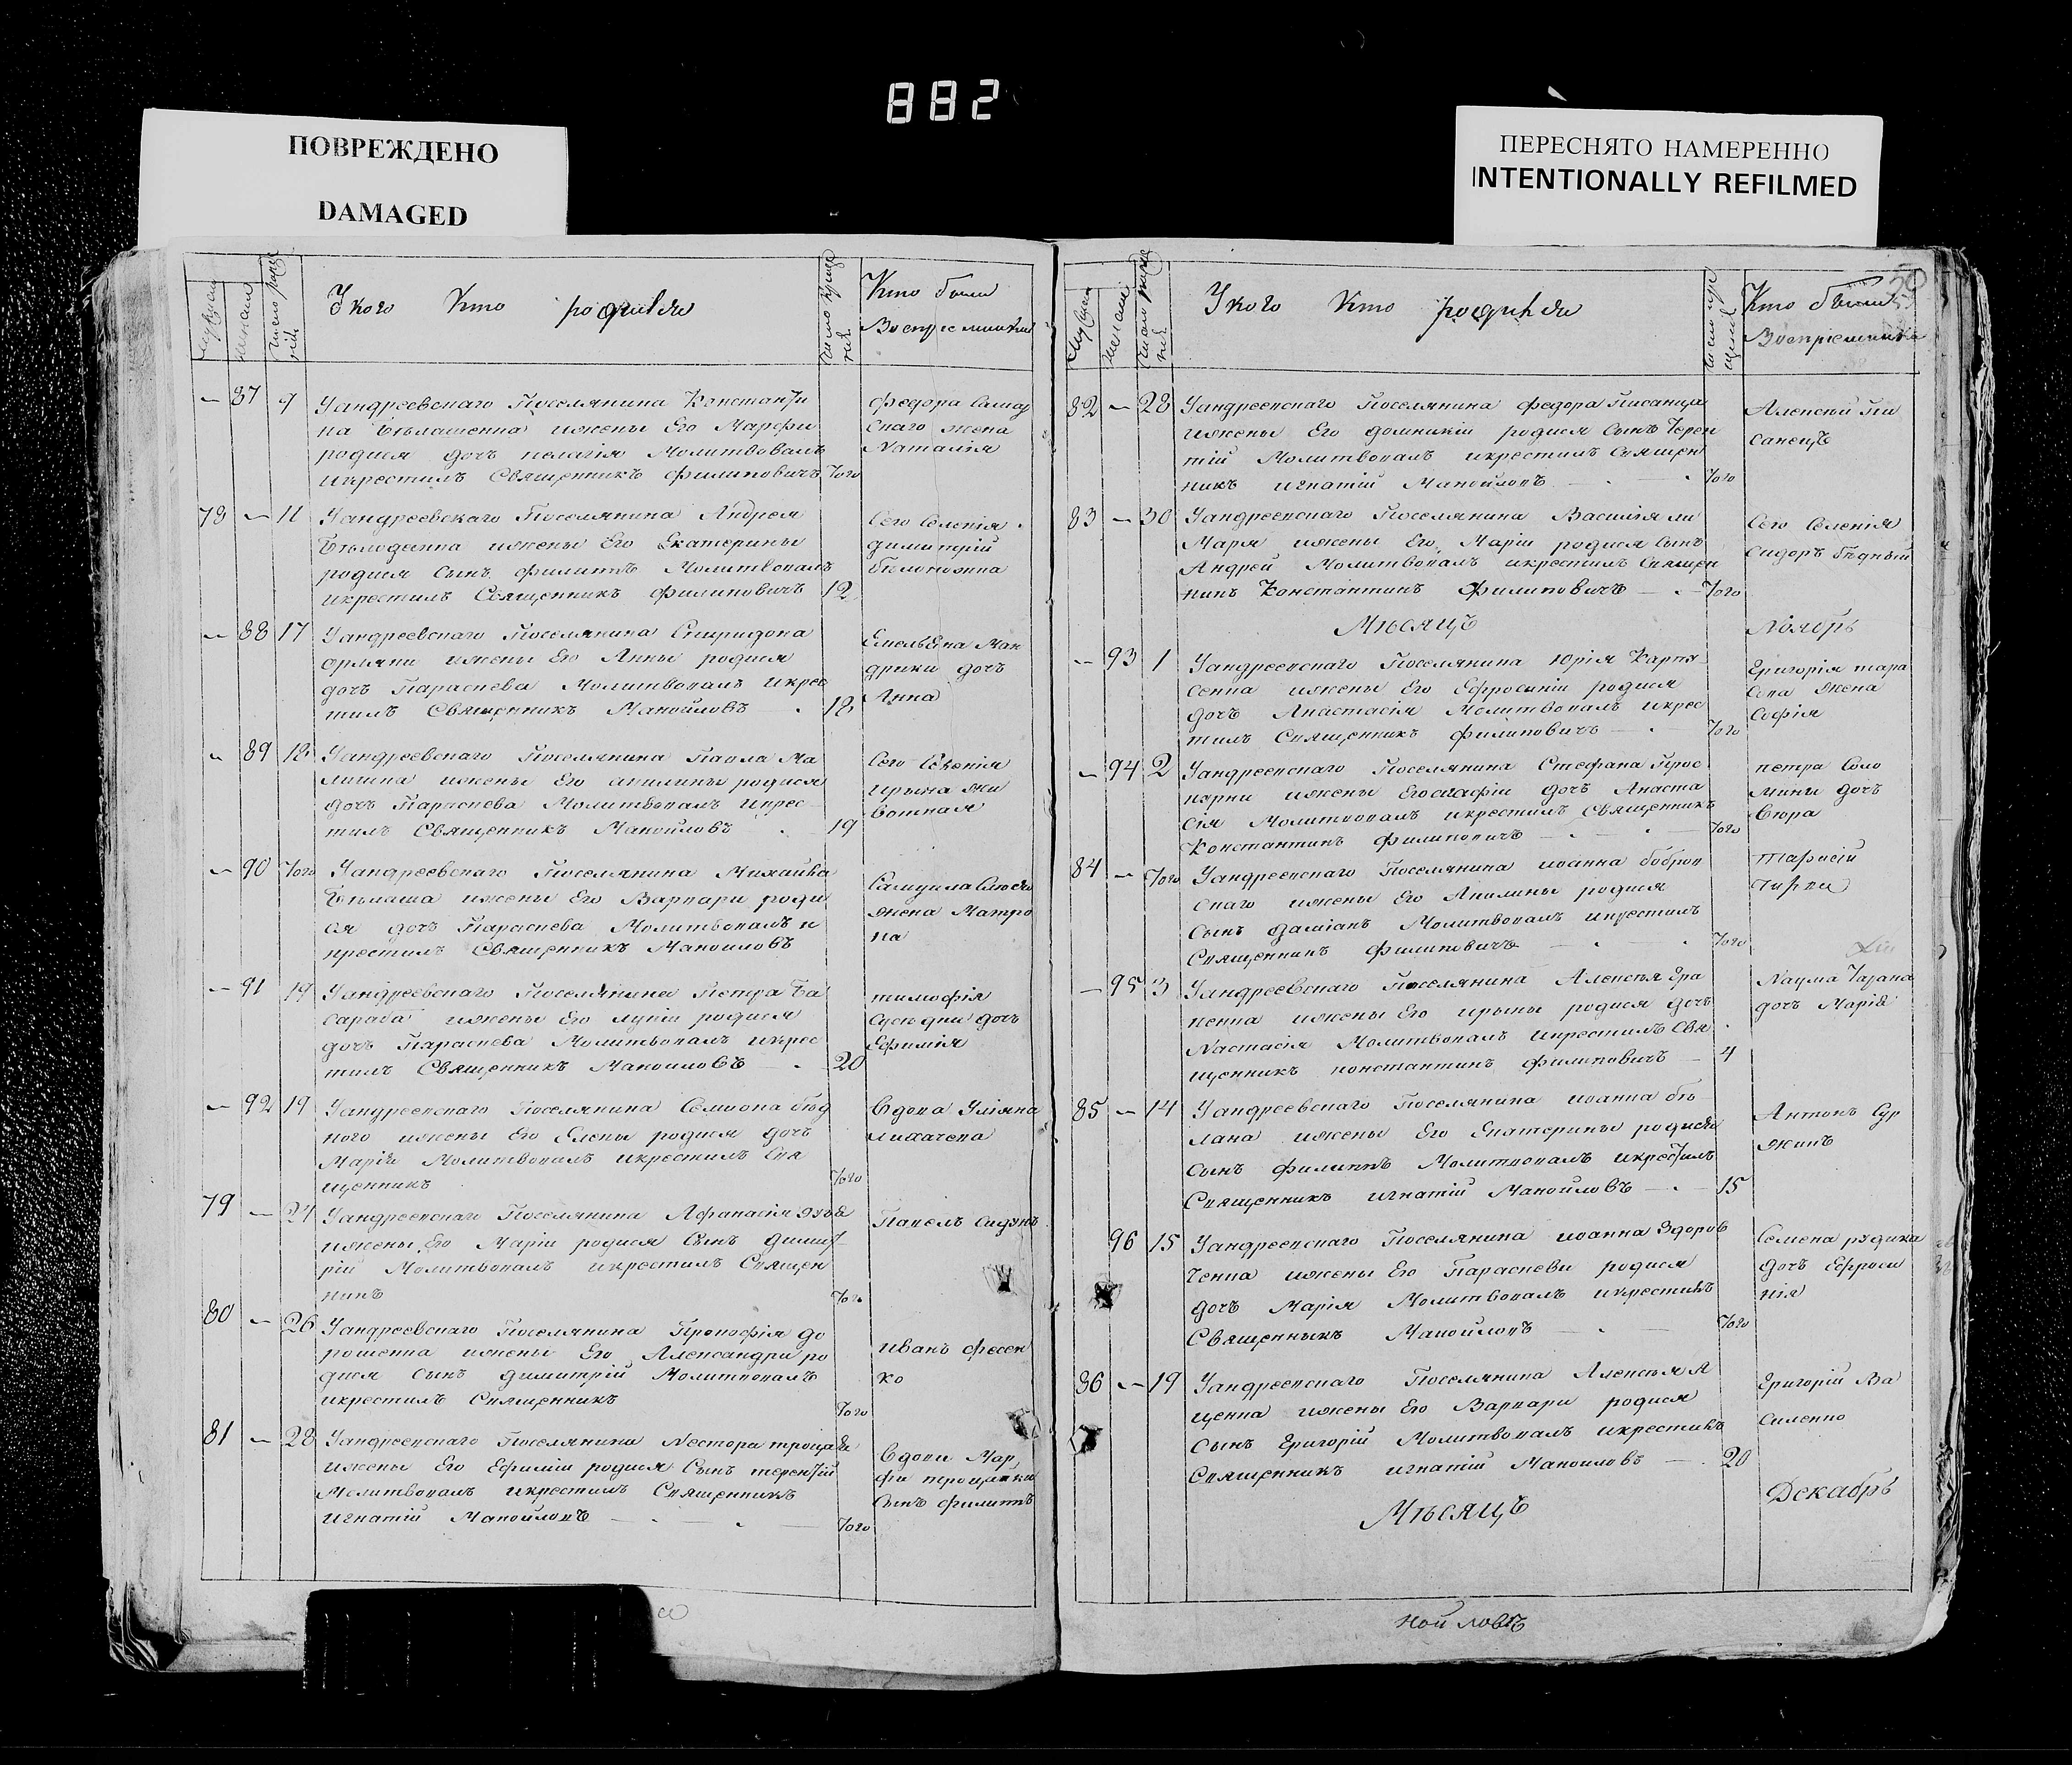 882
ПОВРЕЖДЕНО
DAMAGED
ПЕРЕСНЯТО НАМЕРЕННО
INTENTIONALLY REFILMED
У кого Кто родился
Кто были
Воспреемники
— 87 9 Уандреевскаго Поселянина Константи
на Бѣлашенка ижены Его Марфи
родися дочь пелагія Молитвовалъ
икрестилъ Священникъ Филиповичъ того
Федора
скаго жена
Наталія
78 — 11 Уандреевскаго Поселянина Андрея
ижены Его Екатерины
родися Сынъ филиппъ Молитвовалъ
икрестилъ Священникъ филиповичъ 12
Сего Селенія
димитрій
— 88 17 Уандреевскаго Поселянина Спиридона
ижены Его Анны родися
дочъ Параскева Молитвовалъ икрес
тилъ Священникъ Манойловъ 18
Емельяна Ман
дрики дочъ
Анна
— 89 18 Уандреевскаго Поселянина Павла Ма
ижены Его акилины родися
дочъ Параскева Молитвовалъ икрес
тилъ Священникъ Манойловъ 19
Сего Селенія
Ирына жи
вотная
— 90 того Уандреевскаго Поселянина Михаила
Бѣлаша ижены Его Варвари роди
ся дочъ Параскева Молитвовалъ и
крестилъ Священникъ Маноиловъ
жена Матро
на
— 91 19 Уандреевскаго Поселянина Петра Ба
сараба ижены Его лукіи родися
дочъ Параскева Молитвовалъ икрес
тилъ Священникъ Маноиловъ 20
тимофія
дочъ
Ефимія
— 92 19 Уандреевскаго Поселянина Семиона бѣд
ного ижены Его Елены родися дочъ
Марія Молитвовалъ икрестилъ Свя
щенникъ того
Вдова Уліяна
лихачева
79 — 24 Уандреевскаго Поселянина Афанасія
ижены Его Маріи родися Сынъ димит
рій Молитвовалъ икрестилъ Священ
никъ того
Павелъ
80 — 26 Уандреевскаго Поселянина Прокофія до
рошенка ижены Его Александри ро
дися сынъ димитрій Молитвовалъ
икрестилъ Священникъ того
иванъ фесен
ко
81 — 28 Уандреевскаго Поселянина Нестора
ижены Его Ефиміи родися Сынъ терентій
Молитвовалъ икрестилъ Священникъ
игнатій Манойловъ того
Вдови Мар
фи
Сынъ филиппъ
У кого Кто родился
Кто были
Воспріемники
50
82 — 28 Уандреевскаго Поселянина федора Писанца
ижены Его домникіи родися Сынъ Терен
тій Молитвовалъ икрестилъ Священ
никъ игнатій Манойловъ того
Алексій Пи
санецъ
83 — 30 Уандреевскаго Поселянина Василія
ижены Его Маріи родися Сынъ
Андрей Молитвовалъ икрестилъ Священ
никъ Константинъ Филиповичъ того
Сего Селенія
сидоръ бѣдный
Мѣсяцъ Ноябрь
— 93 1 Уандреевскаго Поселянина Юрія
ижены Его Ефросиніи родися
дочъ Анастасія Молитвовалъ икрес
тилъ Священникъ филиповичъ того
Григорія тара
сова жена
Софія
— 94 2 Уандреевскаго Поселянина Стефана Прос
ижены дочъ Анаста
сія Молитвовалъ икрестилъ Священникъ
Константинъ Филиповичъ того
петра Соло
дочъ
84 — того Уандреевскаго Поселянина иоанна бобров
скаго ижены Его Акилины родися
Сынъ даміанъ Молитвовалъ икрестилъ
Священникъ филиповичъ того
— 95 3 Уандреевскаго Поселянина Алексѣя Гра
ижены Его ирыны родися дочъ
Настасія Молитвовалъ икрестилъ Свя
щенникъ константинъ филиповичъ 4
Наума Тарана
дочъ Марія
85 — 14 Уандреевскаго Поселянина иоанна
ижены Его Екатерины родися
сынъ филиппъ Молитвовалъ икрестилъ
Священникъ игнатій Манойловъ 15
Антонъ Сур
жикъ
96 15 Уандреевскаго Поселянина иоанна Здоров
ченка ижены Его Параскеви родися
дочъ Марія Молитвовалъ икрестилъ
Священныкъ Манойловъ того
Семена рядика
дочъ Ефроси
нія
86 — 19 Уандреевскаго Поселянина Алексѣя
ижены Его Варвари родися
Сынъ Григорій Молитвовалъ икрестилъ
Священникъ игнатій Маноиловъ 20
Григорій Ва
силенко
Мѣсяцъ Декабрь
ной ловъ